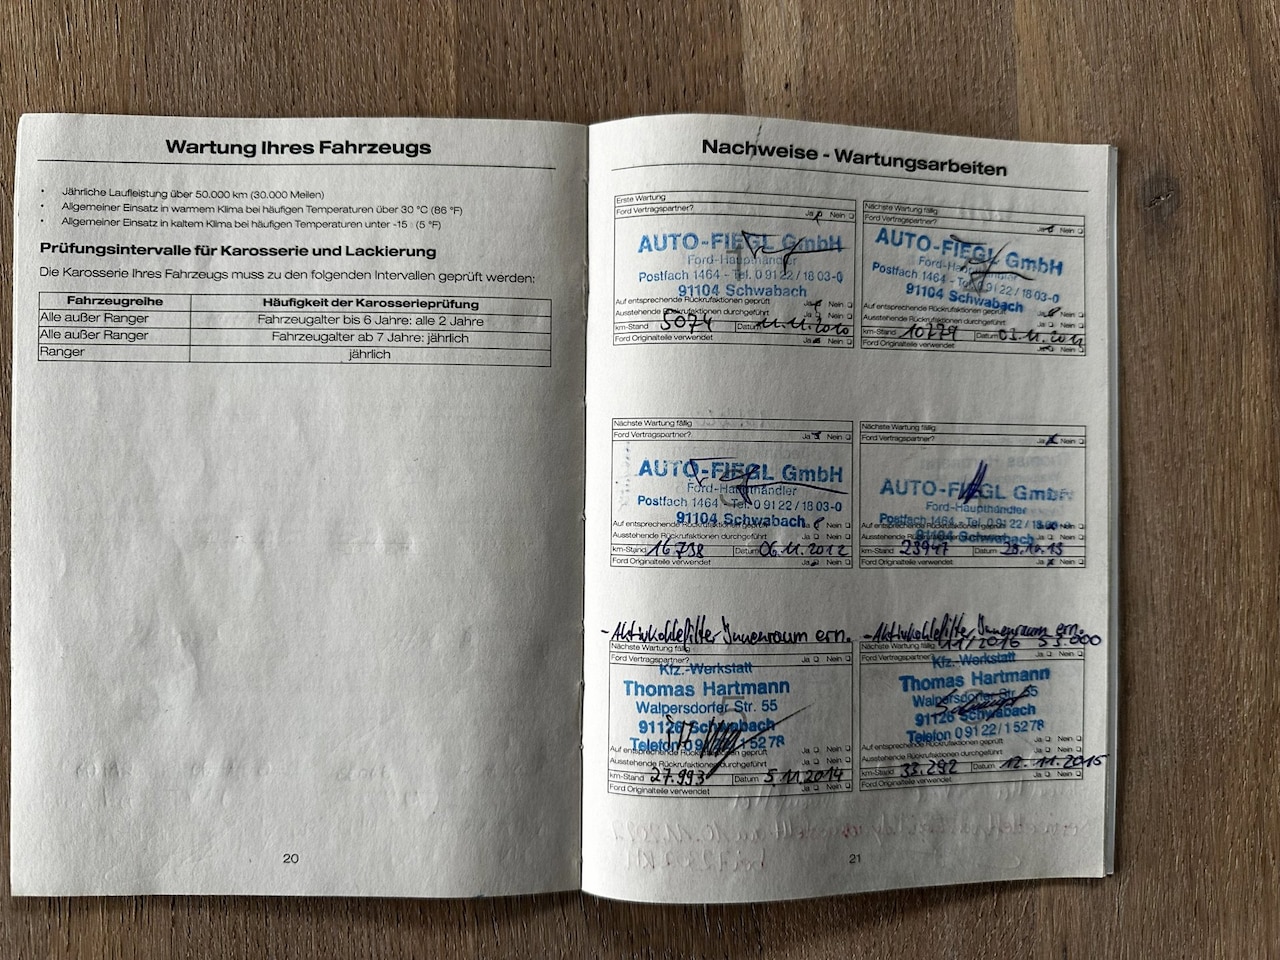 Wartung Ihres Fahrzeugs
• Jährliche Laufleistung über 50.000 km (30.000 Meilen)
• Allgemeiner Einsatz in warmem Klima bei häufigen Temperaturen über 30 °C (86 °F)
• Allgemeiner Einsatz in kaltem Klima bei häufigen Temperaturen unter -15 (5 °F)
Prüfungsintervalle für Karosserie und Lackierung
Die Karosserie Ihres Fahrzeugs muss zu den folgenden Intervallen geprüft werden:
Fahrzeugreihe Häufigkeit der Karosserieprüfung
Alle außer Ranger Fahrzeugalter bis 6 Jahre: alle 2 Jahre
Alle außer Ranger Fahrzeugalter ab 7 Jahre: jährlich
Ranger jährlich
20
Nachweise - Wartungsarbeiten
Erste Wartung
Ford Vertragspartner? Ja Nein
AUTO-FIEGL GmbH
Ford-Haupthändler
Postfach 1464 - Tel. 0 91 22 / 18 03-0
91104 Schwabach
Auf entsprechende Rückrufaktionen geprüft Ja Nein
Ausstehende Rückrufaktionen durchgeführt Ja Nein
km-Stand 5074 Datum 11.11.2010
Ford Originalteile verwendet Ja Nein
Nächste Wartung fällig
Ford Vertragspartner? Ja Nein
AUTO-FIEGL GmbH
Ford-Haupthändler
Postfach 1464 - Tel. 0 91 22 / 18 03-0
91104 Schwabach
Auf entsprechende Rückrufaktionen geprüft Ja Nein
Ausstehende Rückrufaktionen durchgeführt Ja Nein
km-Stand 10279 Datum 03.11.2011
Ford Originalteile verwendet Ja Nein
Nächste Wartung fällig
Ford Vertragspartner? Ja Nein
AUTO-FIEGL GmbH
Ford-Haupthändler
Postfach 1464 - Tel. 0 91 22 / 18 03-0
91104 Schwabach
Auf entsprechende Rückrufaktionen geprüft Nein
Ausstehende Rückrufaktionen durchgeführt Ja Nein
km-Stand 16738 Datum 06.11.2012
Ford Originalteile verwendet Ja Nein
Nächste Wartung fällig
Ford Vertragspartner? Ja Nein
AUTO-FIEGL GmbH
Ford-Haupthändler
Postfach 1464 - Tel. 0 91 22 / 18 03-0
91104 Schwabach
Auf entsprechende Rückrufaktionen geprüft Ja Nein
Ausstehende Rückrufaktionen durchgeführt Ja Nein
km-Stand 23947 Datum
Ford Originalteile verwendet Ja Nein
- Aktivkohlefilter Innenraum ern.
Nächste Wartung fällig
Ford Vertragspartner? Ja Nein
Kfz.-Werkstatt
Thomas Hartmann
Walpersdorfer Str. 55
91126 Schwabach
Telefon 0 91 22 / 1 52 78
Auf entsprechende Rückrufaktionen geprüft Ja Nein
Ausstehende Rückrufaktionen durchgeführt Ja Nein
km-Stand 27.993 Datum 5.11.2014
Ford Originalteile verwendet Ja Nein
- Aktivkohlefilter Innenraum ern.
Nächste Wartung fällig 11/2016 53.000
Ford Vertragspartner? Ja Nein
Kfz.-Werkstatt
Thomas Hartmann
Walpersdorfer Str. 55
91126 Schwabach
Telefon 0 91 22 / 1 52 78
Auf entsprechende Rückrufaktionen geprüft Ja Nein
Ausstehende Rückrufaktionen durchgeführt Ja Nein
km-Stand 33.292 Datum 12.11.2015
Ford Originalteile verwendet Ja Nein
21